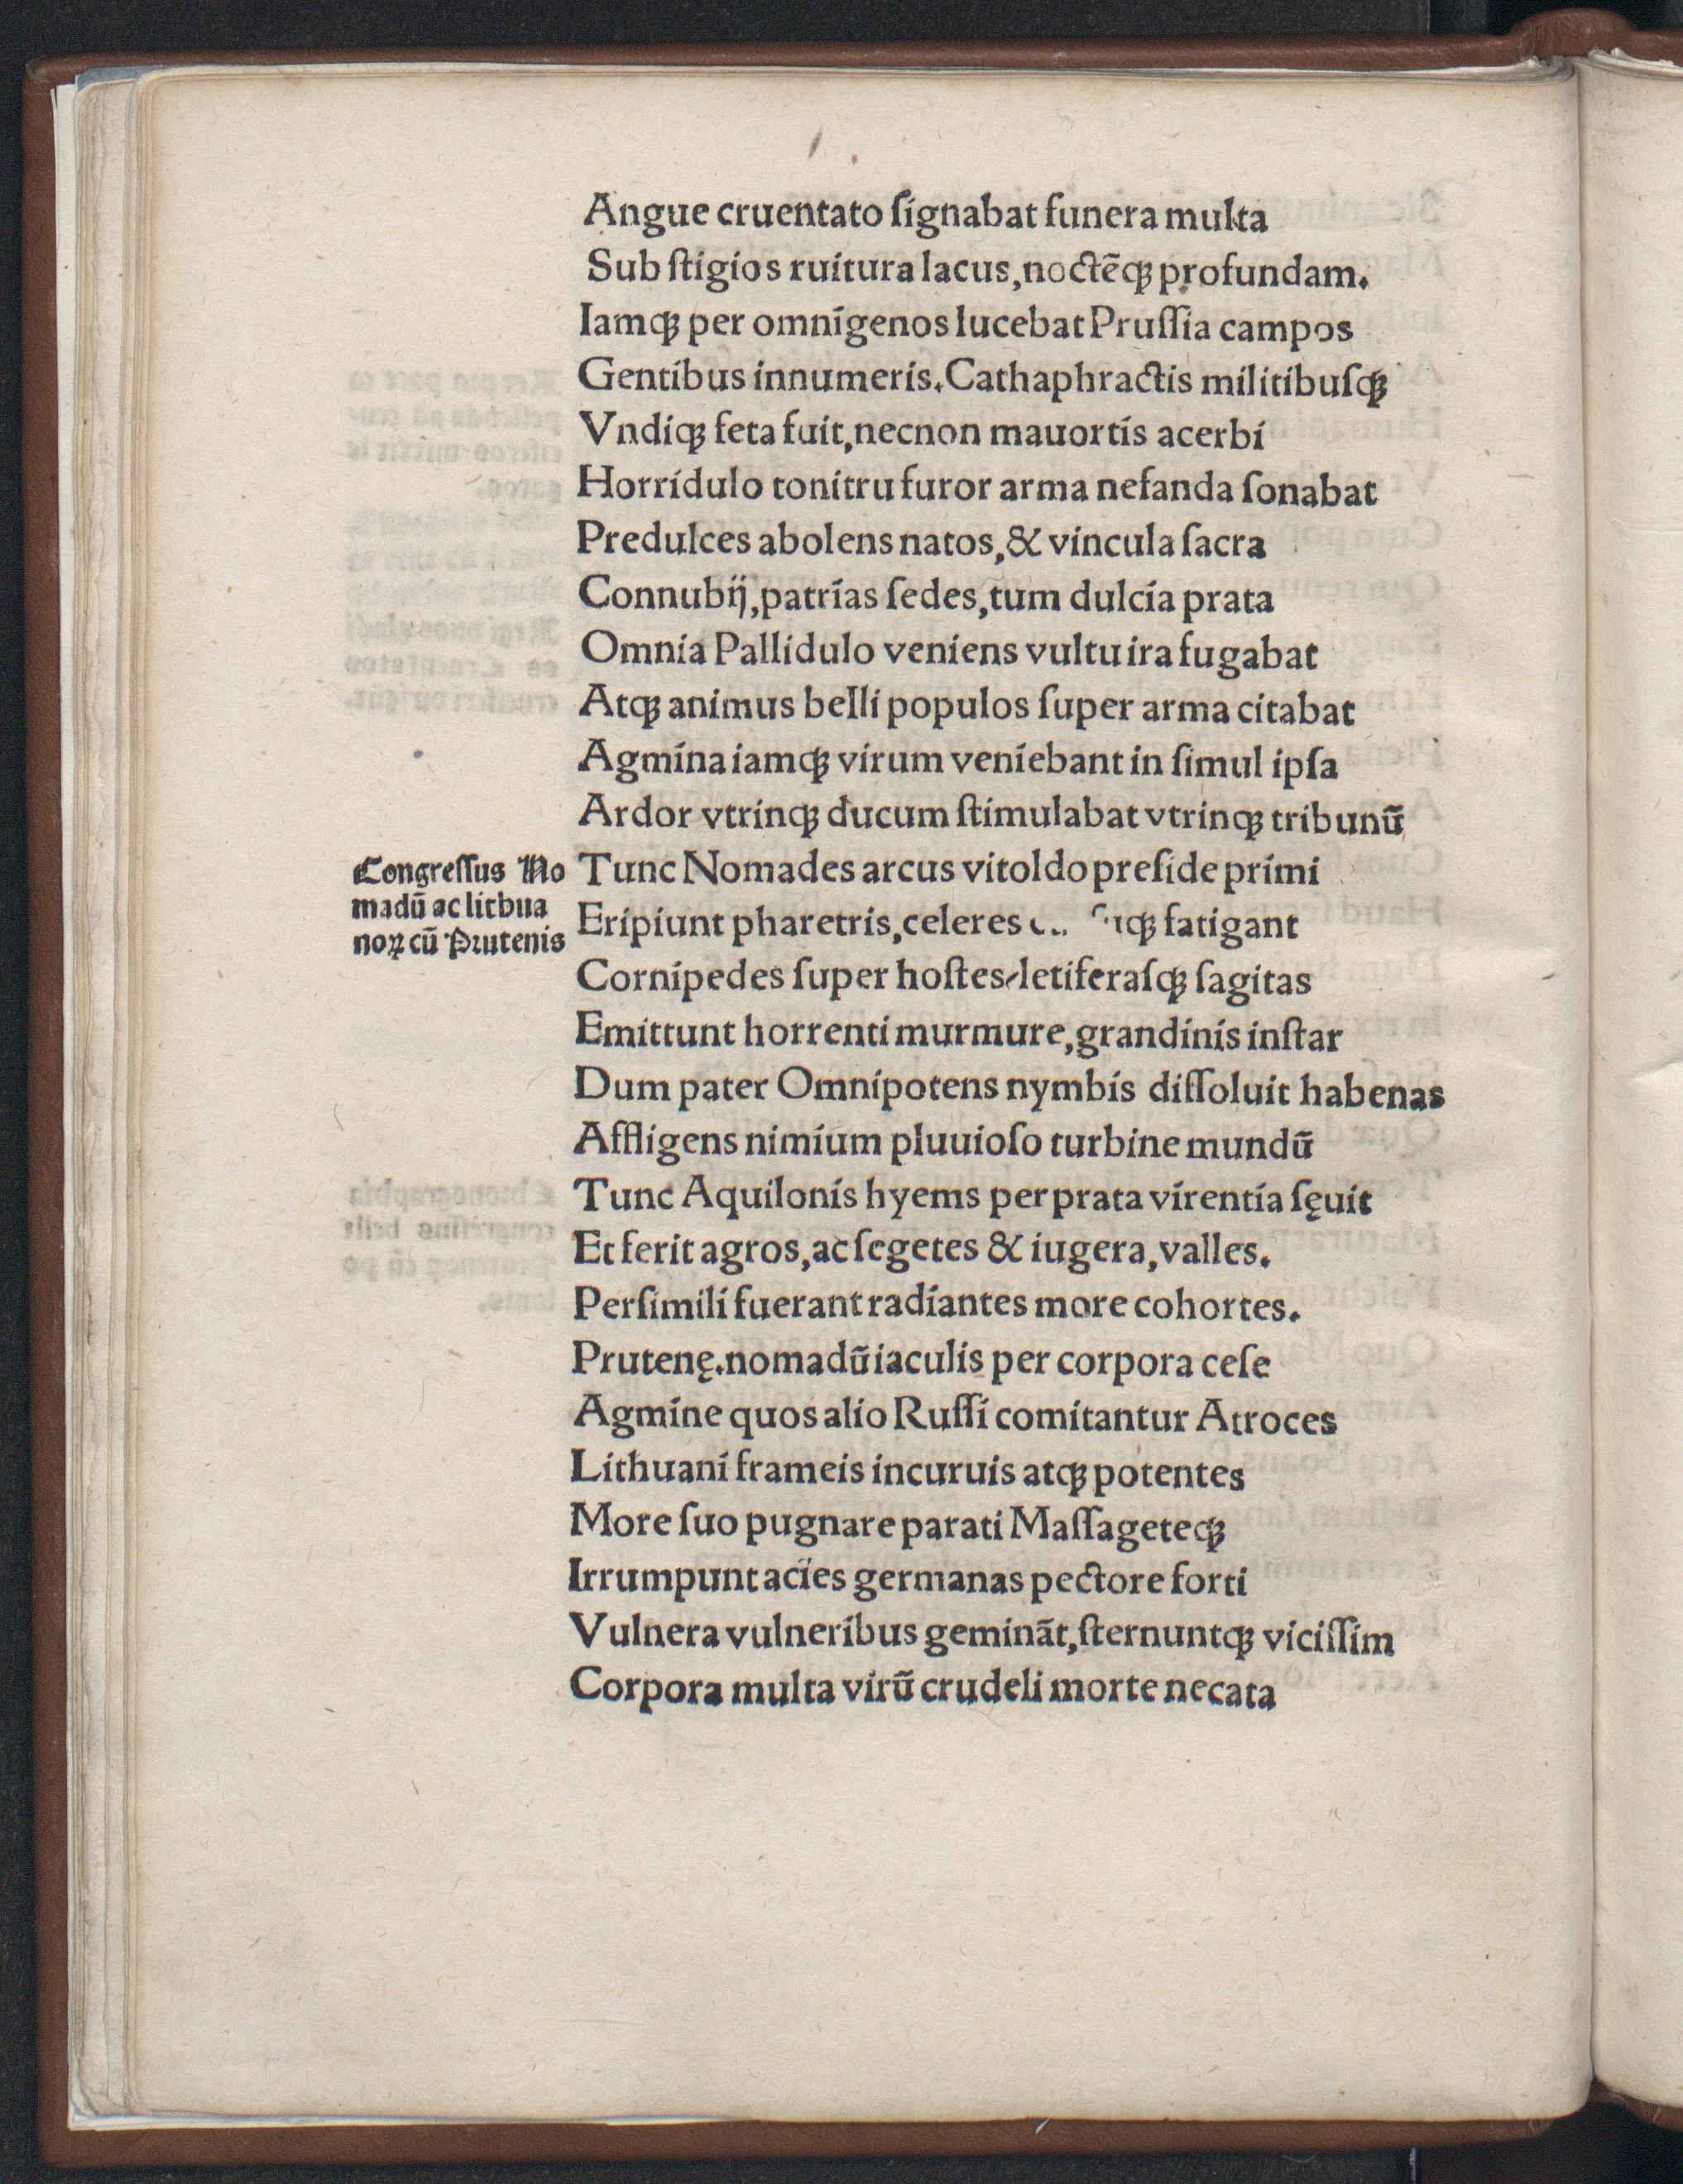 Angue cruentato ſignabat funera multa
Sub ſtigios ruitura lacus,noctēqꝫ profundam.
Iamqꝫ per omnigenos lucebat Pruſſia campos
Gentibus innumeris.Cathaphractis militibuſqꝫ
Vndiqꝫ feta fuit,necnon mauortis acerbi
Horridulo tonitru furor arma nefanda ſonabat
Predulces abolens natos,& vincula ſacra
Connubij,patrias ſedes,tum dulcia prata
Omnia Pallidulo veniens vultu ira fugabat
Atqꝫ animus belli populos ſuper arma citabat
Agmina iamqꝫ virum veniebant in ſimul ipſa
Ardor vtrinqꝫ ducum ſtimulabat vtrinqꝫ tribunū
Congreſſus No
madū ac litbua
noꝝ cū Prutenis
Tunc Nomades arcus vitoldo preſide primi
Eripiunt pharetris,celeres fatigant
Cornipedes ſuper hoſtes/letiferaſqꝫ ſagitas
Emittunt horrenti murmure,grandinis inſtar
Dum pater Omnipotens nymbis diſſoluit habenas
Affligens nimium pluuioſo turbine mundū
Tunc Aquilonis hyems per prata virentia ſęuit
Et ferit agros,ac ſegetes & iugera,valles.
Perſimili fuerant radiantes more cohortes.
Prutenę.nomadū iaculis per corpora ceſe
Agmine quos alio Ruſſi comitantur Atroces
Lithuani frameis incuruis atqꝫ potentes
More ſuo pugnare parati Maſſageteqꝫ
Irrumpunt acies germanas pectore forti
Vulnera vulneribus geminãt,ſternuntqꝫ viciſſim
Corpora multa virū crudeli morte necata